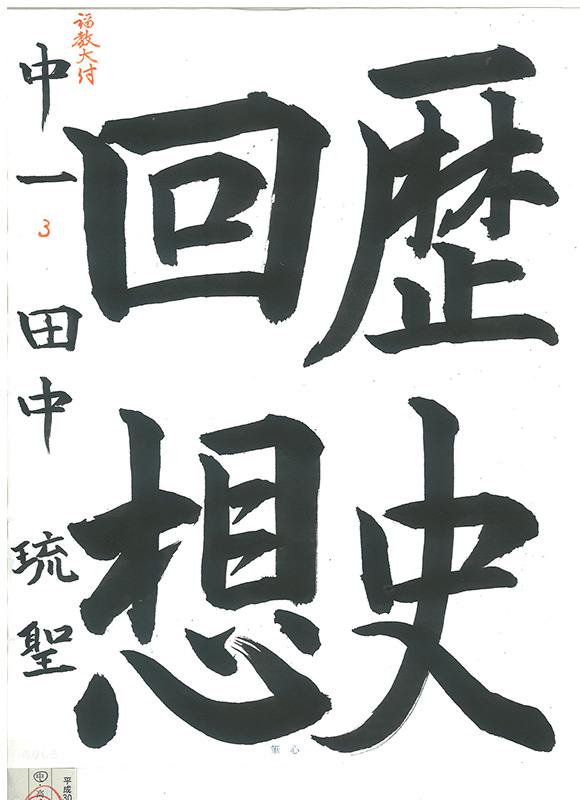 歴史
回想
福教大付
中一 田中 琉聖
3
心筆
平成30
中・高